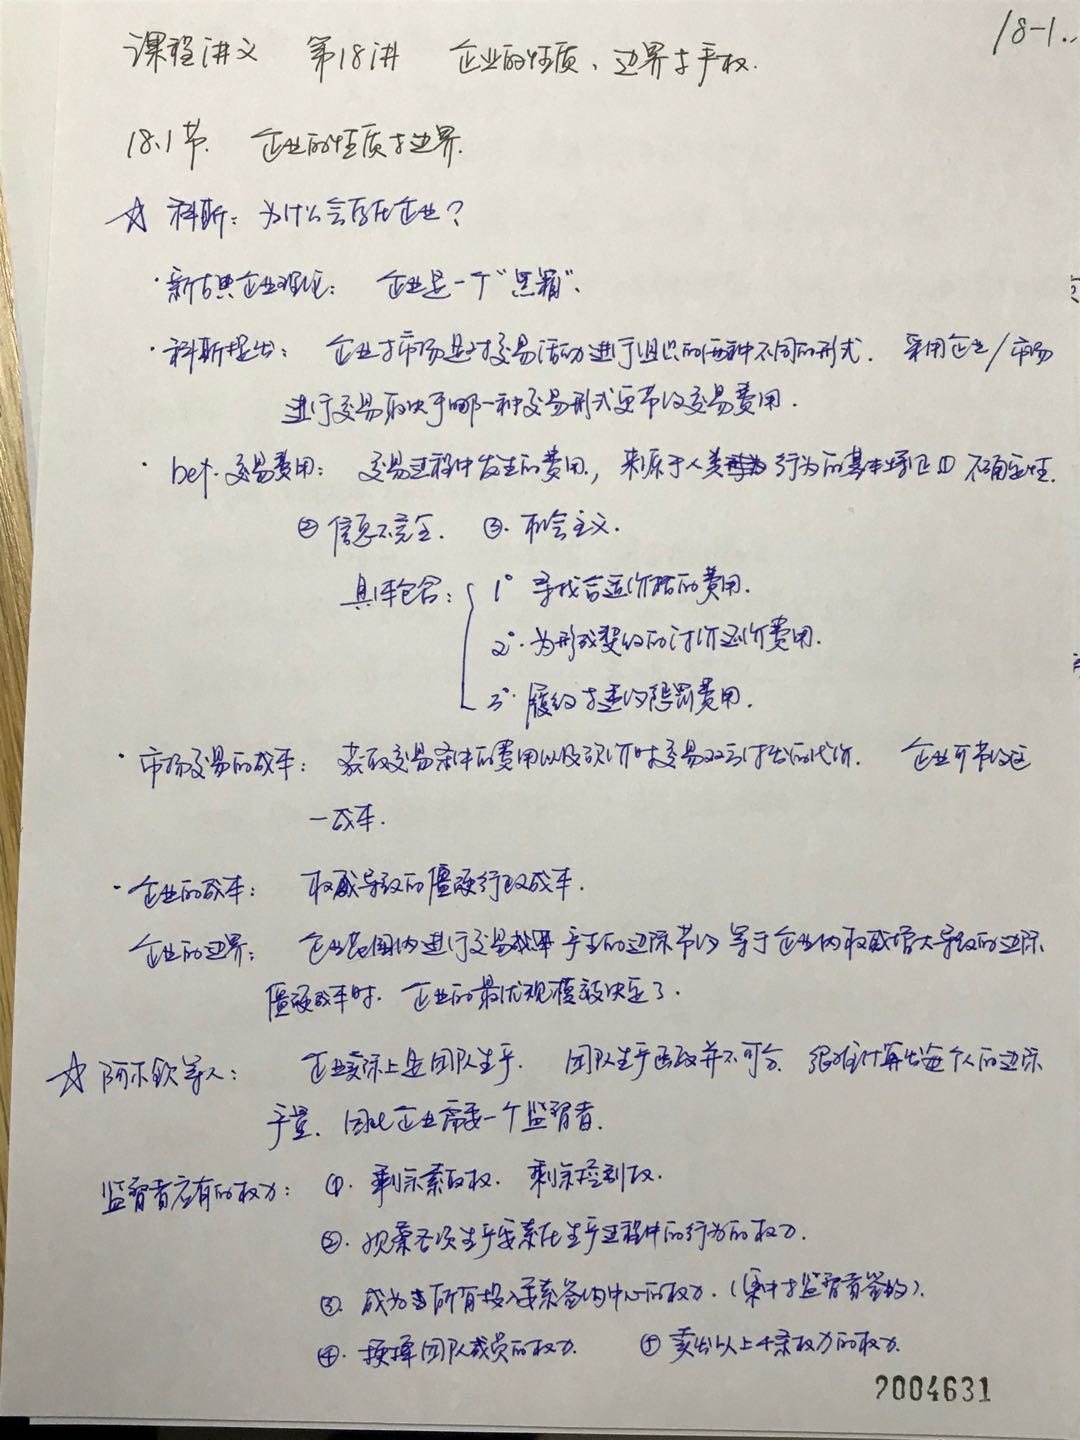 18-1..
课程讲义 第18讲 企业的性质、边界与产权.
18.1节. 企业的性质与边界.
☆ 科斯: 为什么会存在企业?
·新古典企业理论: 企业是一个"黑箱".
·科斯提出: 企业与市场是对交易活动进行组织的两种不同的形式. 采用企业/市场
进行交易取决于哪一种交易形式更节约交易费用.
· def. 交易费用: 交易过程中发生的费用, 来源于人类行为的基本特征 ① 不确定性.
② 信息不完全. ③. 机会主义.
具体包含: 1° 寻找合适价格的费用.
2°. 为形成契约的讨价还价费用.
3°. 履约与违约惩罚费用.
·市场交易的成本: 获取交易条件的费用以及砍价时交易双方付出的代价. 企业可节约这
一成本.
·企业的成本: 权威导致的僵硬行政成本.
企业的边界: 企业范围内进行交易产生的边际节约等于企业内权威增大导致的边际
僵硬成本时. 企业的最优规模被决定了.
☆ 阿尔钦等人: 企业实际上是团队生产. 团队生产函数并不可分. 很难计算出每个人的边际
产量. 因此企业需要一个监督者.
监督者应有的权力: ①. 剩余索取权. 剩余控制权.
②. 观察各项生产要素在生产过程中的行为的权力.
③. 成为与所有投入要素签约中心的权力. (集中与监督者签约).
④. 换掉团队成员的权力. ⑤ 卖出以上4条权力的权力.
2004631